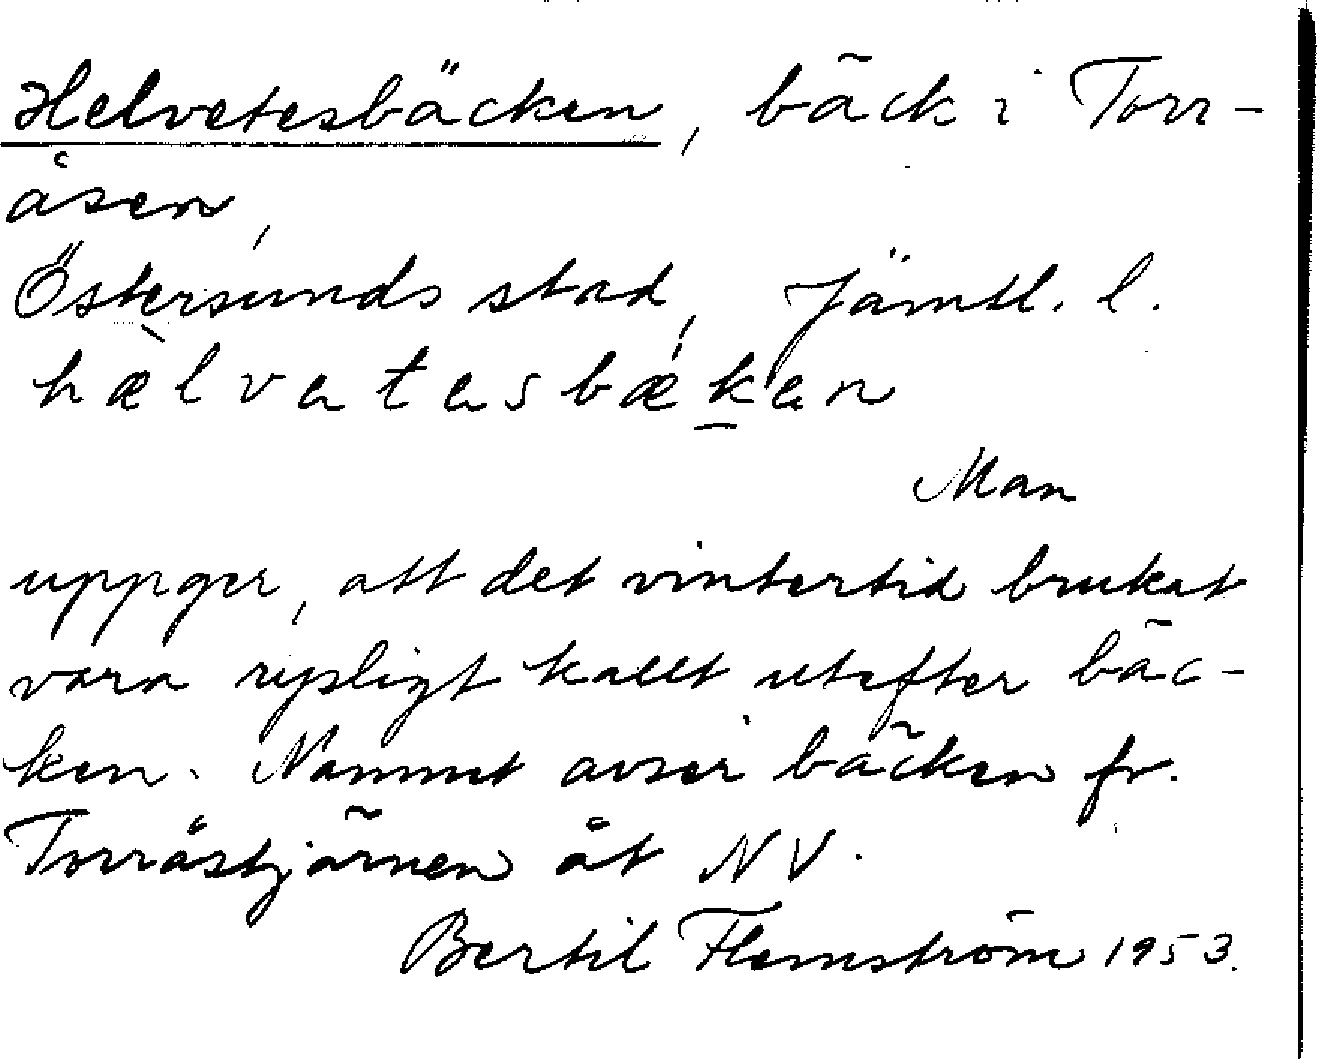 Helvetesbäcken, bäck i Torr-
åsen,
Östersunds stad, Jämtl. l.
hæ̀lvetesbǽḵen
Man
uppger, att det vintertid brukat
vara rysligt kallt utefter bäc-
ken. Namnet avser bäcken fr.
Torråstjärnen åt NV.
Bertil Flemström 1953.